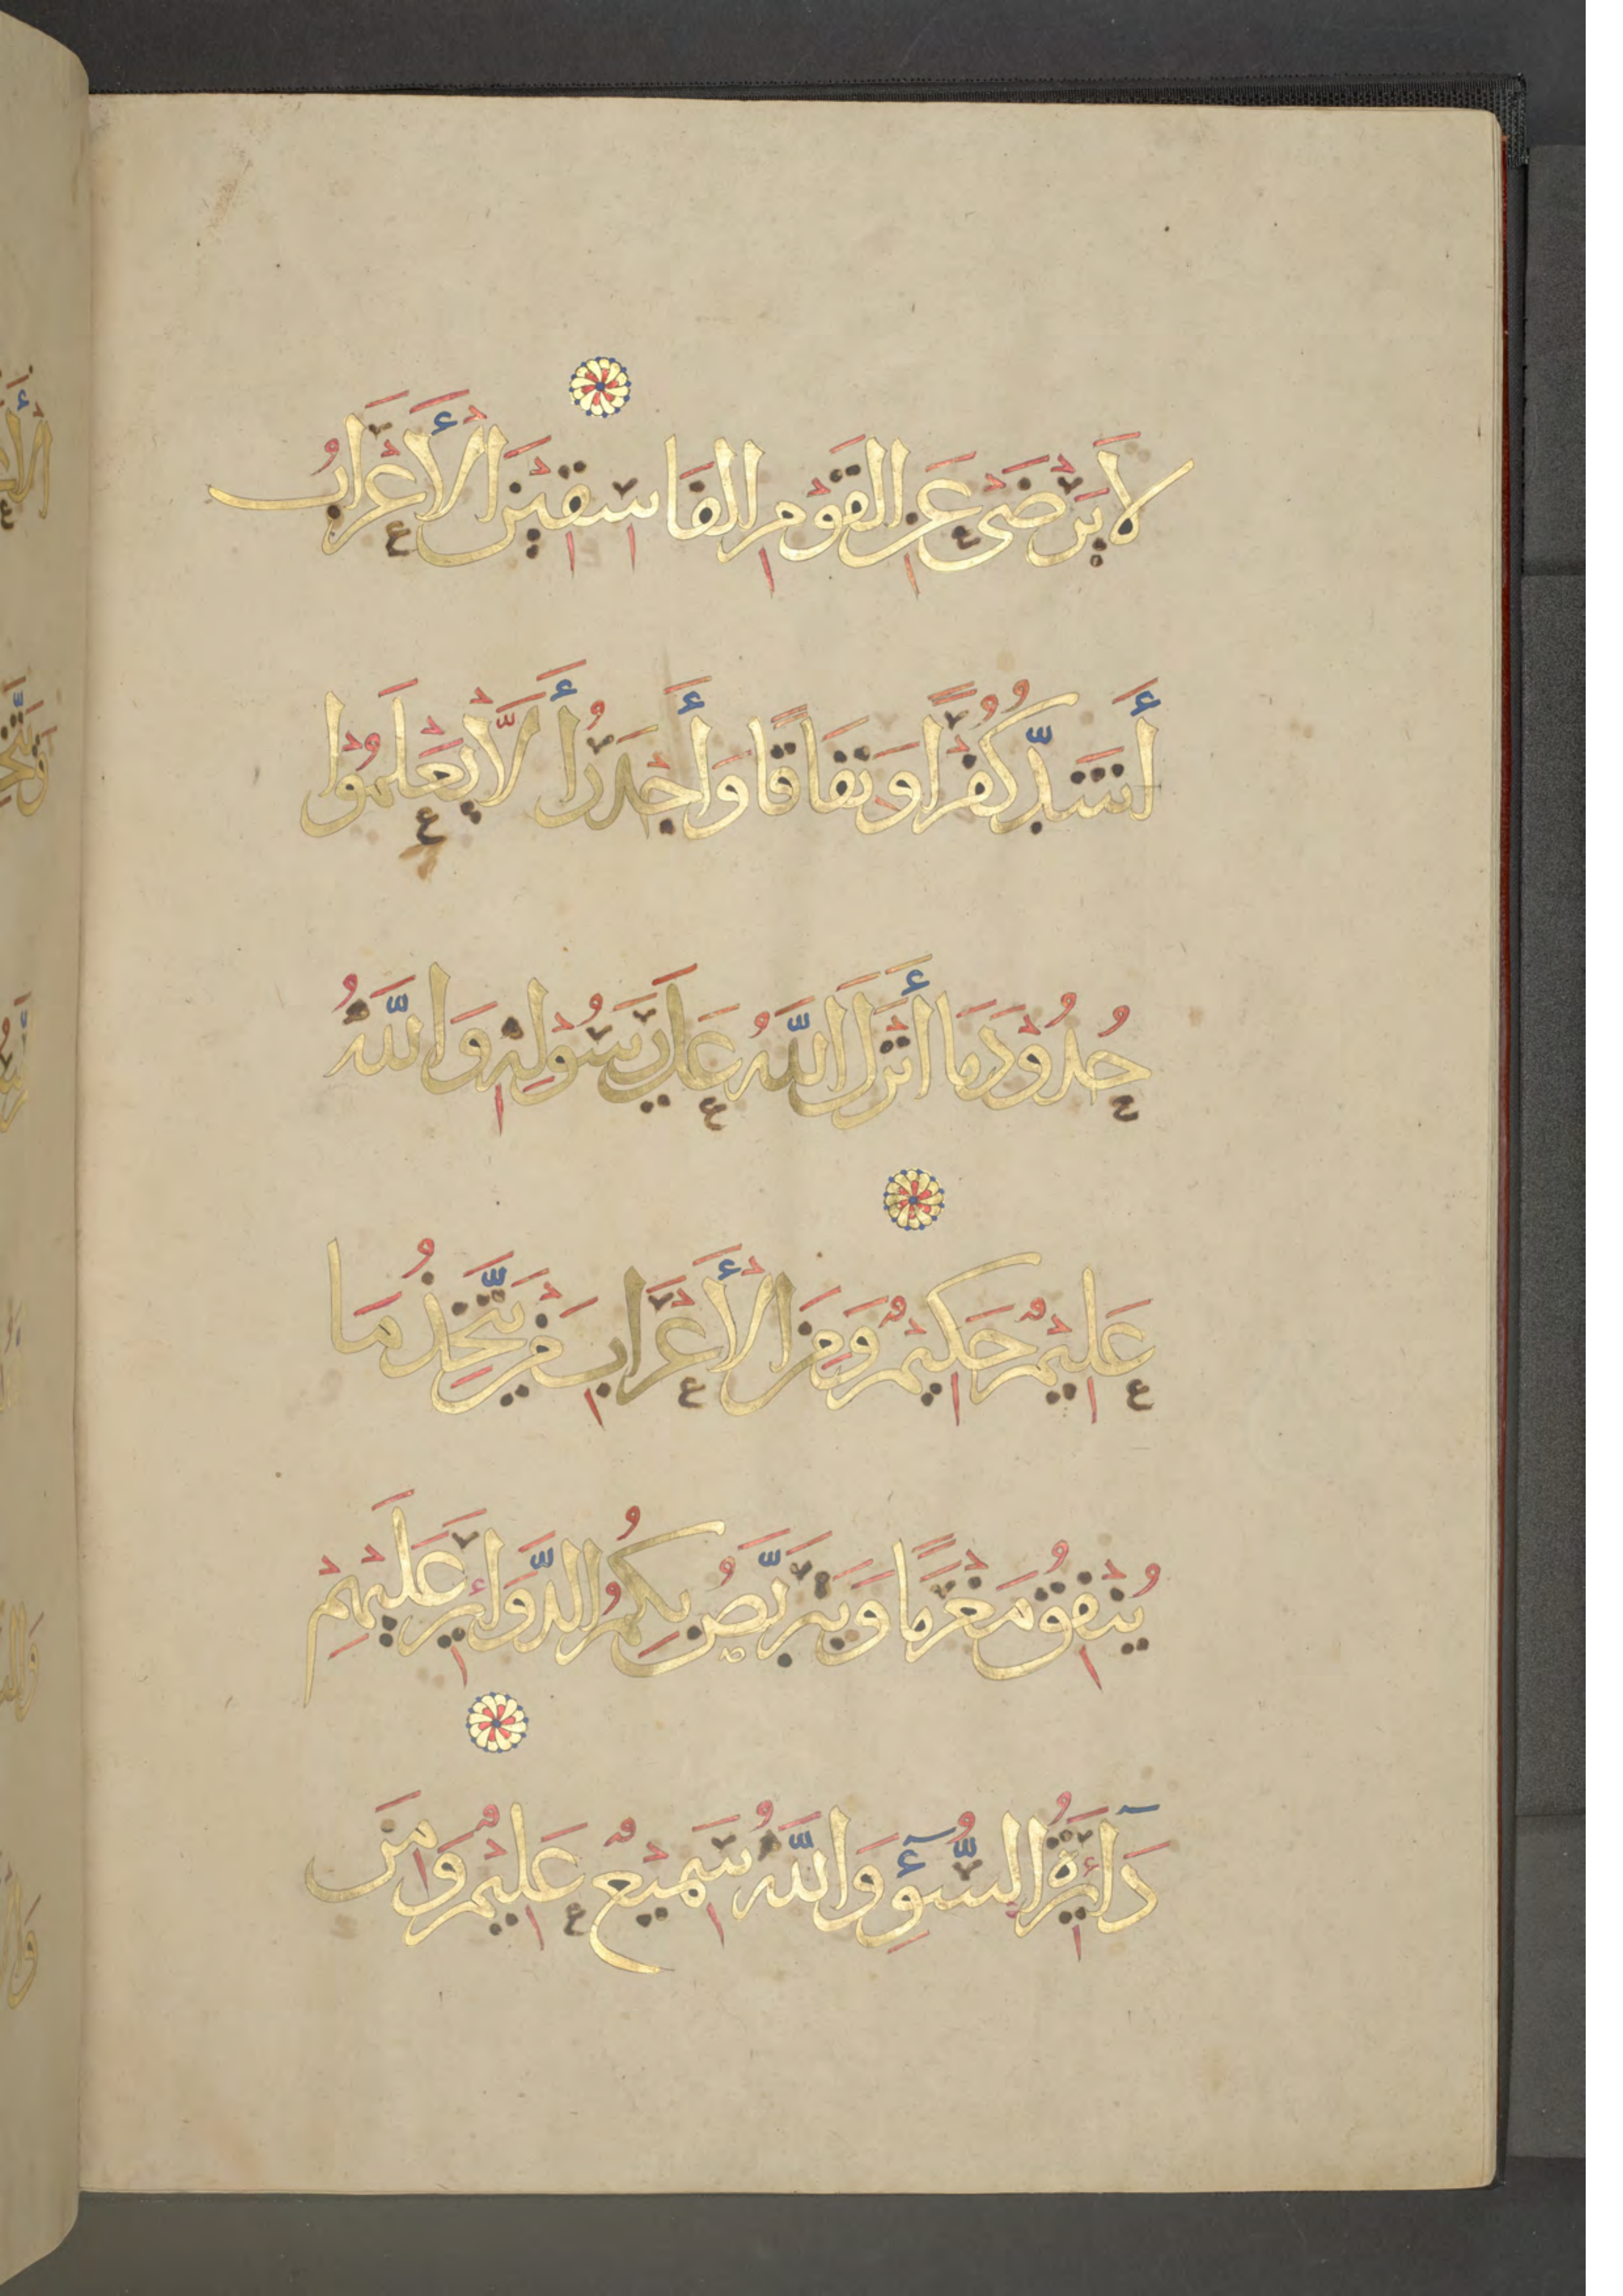 لَا يَرْضَىٰ عَنِ الْقَوْمِ الْفَاسِقِيْنَ الْأَعْرَابُ
أَشَدُّ كُفْرًا وَنِفَاقًا وَأَجْدَرُ أَلَّا يَعْلَمُوْا
حُدُوْدَ مَا أَنْزَلَ اللَّهُ عَلَى رَسُوْلِهِ وَاللَّهُ
عَلِيْمٌ حَكِيْمٌ وَمِنَ الْأَعْرَابِ مَنْ يَتَّخِذُ مَا
يُنْفِقُ مَغْرَمًا وَيَتَرَبَّصُ بِكُمُ الدَّوَائِرَ عَلَيْهِمْ
دَآئِرَةُ السُّوْءِ وَاللَّهُ سَمِيْعٌ عَلِيْمٌ وَمِنَ